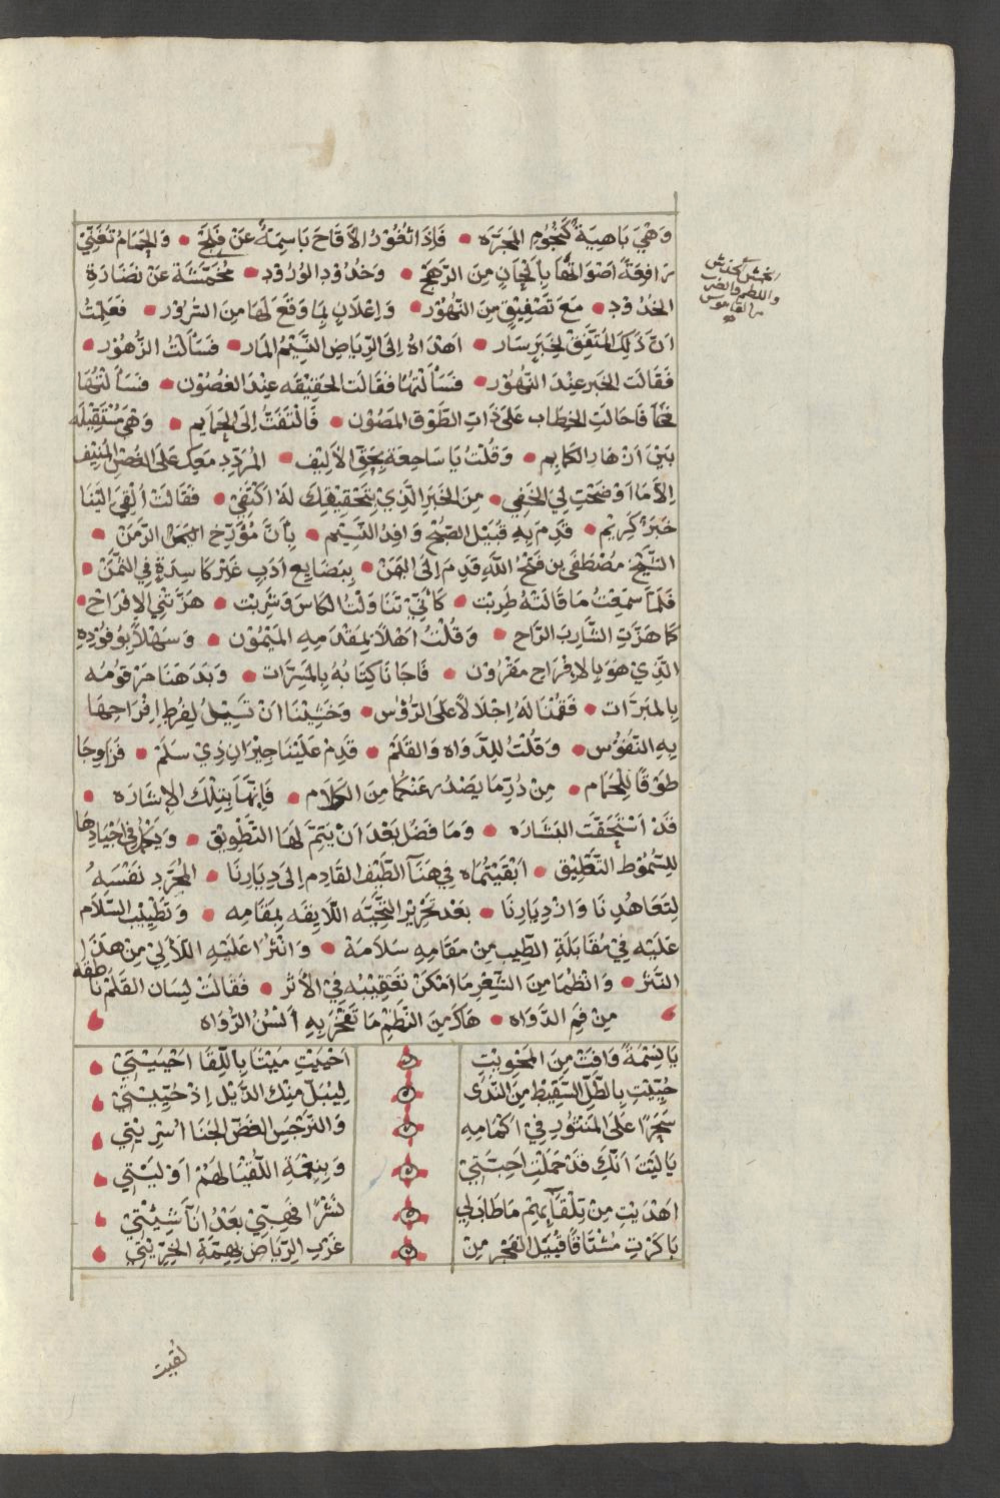 وَهْيَ بَاهِيَةٌ كَنُجُومِ المَجَرَّه • فَإِذَا ثُغُوْرُ الأَقَاحِ بَاسِمَةٌ عَنْ فَلَجٍ • وَالحَمَامُ تُغَنِّيْ
رَافِعَةً اَصْوَاتَهَا بِأَلْحَانٍ مِنَ الرَّهَجْ • وَخُدُوْدِ الوُرُوْدِ • مُخَمَّشَة عَنْ نَضَارَةِ
الخُدُوْدِ • مَعَ تَصْفِيْقٍ مِنَ النُّهُوْر • وَاِعْلَانٍ بِمَا وَقَعَ لَهَا مِنَ السُّرُوْر • فَعَلِمْتُ
اَنَّ ذَلِكَ المُتَّفِقْ لِخَبَرٍ سَار • اَهْدَاهُ اِلَى الرِّيَاضِ النَّسِيْمُ المَار • فَسَأَلْتُ الزُّهُوْر •
فَقَالَت الخَبَر عِنْدَ النُّهُوْر • فَسَأَلْتُهَا فَقَالَت الحَقِيْقَه عِنْدَ الغُصُوْن • فَسَأَلْتُهَا
فَاَحَالَتِ الخِطَاب عَلَى ذَاتِ الطَّوْقِ المَصُوْن • فَالْتَفَتُّ اِلَى الحَمَايِم • وَهْيَ مُسْتَقْبِلَه
بَيْنَ اَزْهَارِ الكَمَايِم • وَقُلْتُ يَا سَاجِعَة بِحَقِّ الأَلِيْف • المُرَدِّدِ مَعَكِ عَلَى الغُصْنِ المُنِيْف
اِلَّا مَا اَوْضَحْتِ لِيَ الخَفِي • مِنَ الخَبَرِ الَّذِيْ بِتَحْقِيْقِكِ لَهُ اَكْتَفِيْ • فَقَالَتْ اُلْقِيَ اِلَيْنَا
خَبَرٌ كَرِيْم • قَدِمَ بِهِ قُبَيْلَ الصُّبْحِ وَافِدُ النَّسِيْم • بِأَنَّ مُؤَرِّخَ اليَمَن الزَّمَنْ •
الشَّيْخَ مُصْطَفَى بن فَتْحُ اللهِ قَدِمَ اِلَى اليَمَنْ • بِبَضَايِعِ اَدَبٍ غَيْرِ كَاسِدَةٍ فِي الثَّمَنْ •
فَلَمَّا سَمِعْتُ مَا قَالَتْهُ طَرِبْت • كَأَنِّيْ تَنَاوَلْتُ الكَاسَ وَشَرِبْت • هَزَّتْنِي الاِفْرَاح •
كَمَا هَزَّتِ الشَّارِبَ الرَّاح • وَقُلْتُ اَهْلاً بِمَقْدَمِهِ المَيْمُوْن • وَسَهْلاً بِوُفُوْدِهِ
الَّذِيْ هُوَ بِالاِفْرَاحِ مَقْرُوْن • فَجَانَا كِتَابُهُ بِالمَسَرَّات • وَبَدَهَنَا مَرْقُوْمُه
بِالمَبَرَّات • فَقُمْنَا لَهُ اِجْلَالاً عَلَى الرُّؤُوْس • وَخَشِيْنَا اَنْ تَسِيْلَ لِفَرْطِ اِفْرَاحِهَا
بِهِ النُّفُوْس • وَقُلْتُ لِلدَّوَاه وَالقَلَمْ • قَدِمَ عَلَيْنَا جِيْرَانِ ذِيْ سَلَمْ • فَزَاوِجَا
طَوْقًا لِلْحَمَام • مِنْ دُرِّ مَا يَصْدُر عَنْكُمَا مِنَ الكَلَام • فَاِنَّهَا بِتِلْكَ الاِشَارَه •
قَدْ اسْتَحَقَّت البَشَارَه • وَمَا فَضُلَ بَعْدَ اَنْ يَتِمَّ لَهَا التَّطْوِيْق • وَيَكْمُلُ فِيْ اَجْيَادِهَا
لِلسُّمُوْطِ التَّعْلِيْق • اَبْقَيْتُمَاه فِيْ هَنَآ الطَّيْفِ القَادِم اِلَى دِيَارِنَا • المُجَرَّدِ نَفْسَهُ
لِتَعَاهُدِنَا وَازْدِيَارِنَا • بَعْدَ تَحْرِيْرِ التَّحِيَّه اللَّايِقَه بِمَقَامِه • وَتَطْيِيْبِ السَّلَام
عَلَيْه فِيْ مُقَابَلَةِ الطِّيْب مِنْ مَقَامِهِ سَلَامَهْ • وَانْثُرَا عَلَيْهِ اللَّآلِيْ مِنْ هَذَا
النَّثْر • وَانْظِمَا مِنَ الشِّعْرِ مَا اَمْكَنْ تَعْقِيْبُه فِيْ الأَثَر • فَقَالَتْ لِسَان القَلَمْ نَاطِقَه
مِنْ فَمِ الدَّوَاه • هَاكَ مِنَ النَّظْمِ مَا تَفْخَرُ بِهِ اَلْسُنُ الرُّوَاه
يَا نِسْمَةً وَافَتْ مِنَ المَخْوِيْتِ اَحْيَيْتِ مَيْتًا بِاللِّقَا اَحْيَيْتِيْ
حُيِّيْتِ بِالطَّلِّ السَّقِيْطِ مِنَ النَّدَى لِيُبَلَّ مِنْكِ الذَّيْل اِذْ حُيِّيْتِيْ
سَحَرًا عَلَى المَنْثُوْرِ فِيْ اَكْمَامِهِ وَالنَّرْجِسِ الغَضِّ الجَنَا اُسْرِيْتِيْ
يَا لَيْتَ اَنَّكِ قَدْ حَمَلْتِ اَحِبَّتِيْ وَبِنِعْمَةِ اللُّقْيَا لَهُمْ اَوْلَيْتِيْ
اَهْدَيْتِ مِنْ تِلْقَآيِهِمْ مَا طَابَ لِيْ نَشْرًا فَهِبِّيْ بَعْدُ اَنَّا شِئْتِيْ
بَاكَرْتِ مُشْتَاقًا قُبَيْلَ الفَجْرِ مِنْ غَرْبِ الرِّيَاضِ بِهِمَّةِ الخِرِّيْتِيْ
لقيت